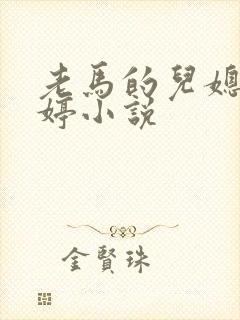 老馬的兒媳
婷小說
金賢珠